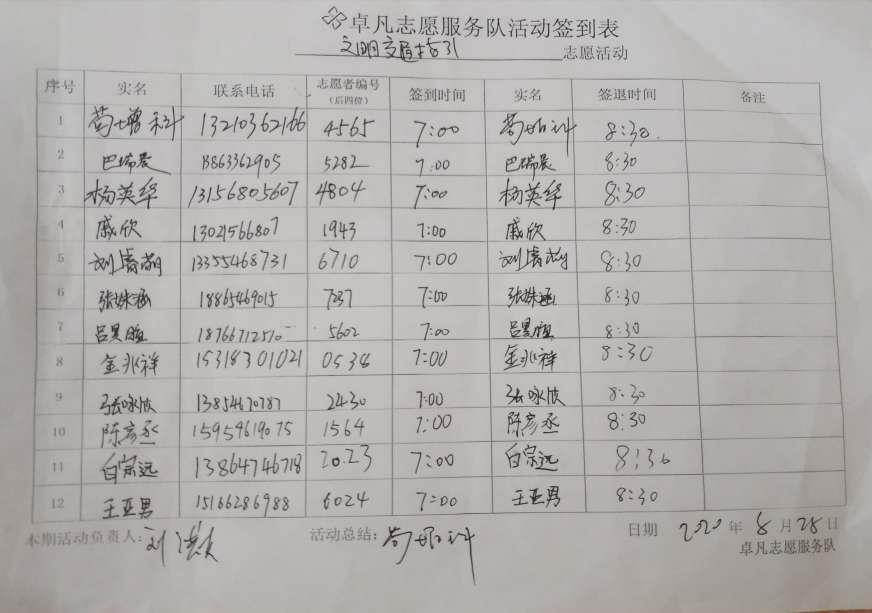 卓凡志愿服务队活动签到表
文明交通指引 志愿活动
序号 实名 联系电话 志愿者编号（后四位） 签到时间 实名 签退时间 备注
1 13210362166 4565 7:00 8:30
2 巴瑞晨 13863362905 5282 7:00 巴瑞晨 8:30
3 杨英华 13156805607 4804 7:00 杨英华 8:30
4 戚欣 13021566807 1943 7:00 戚欣 8:30
5 13355468731 6710 7:00 8:30
6 张姝涵 18865469015 7237 7:00 张姝涵 8:30
7 18766712510 5602 7:00 8:30
8 金兆祥 15318301021 0536 7:00 金兆祥 8:30
9 张咏欣 13854670787 2430 7:00 张咏欣 8:30
10 陈彦丞 15954619075 1564 7:00 陈彦丞 8:30
11 白宗远 13864746718 2023 7:00 白宗远 8:30
12 王亚男 15166286988 6024 7:00 王亚男 8:30
本期活动负责人: 刘 活动总结: 日期 2020年8月28日
卓凡志愿服务队